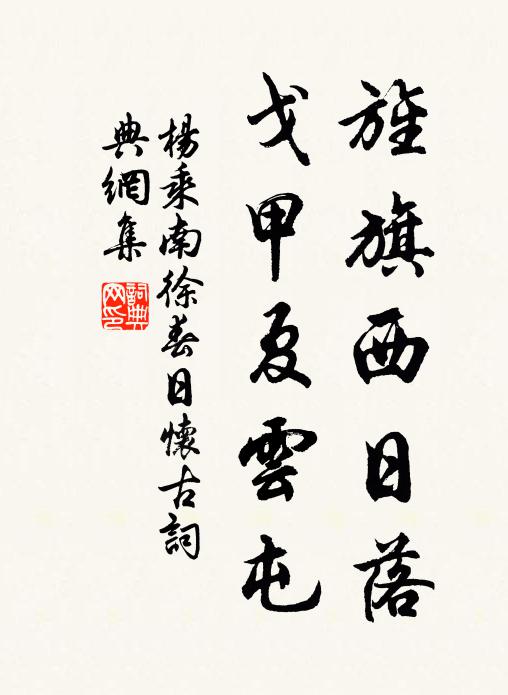 旌旗西日落
戈甲夏雲屯
楊乘南徐春日懷古詞
典網集
詞典網印